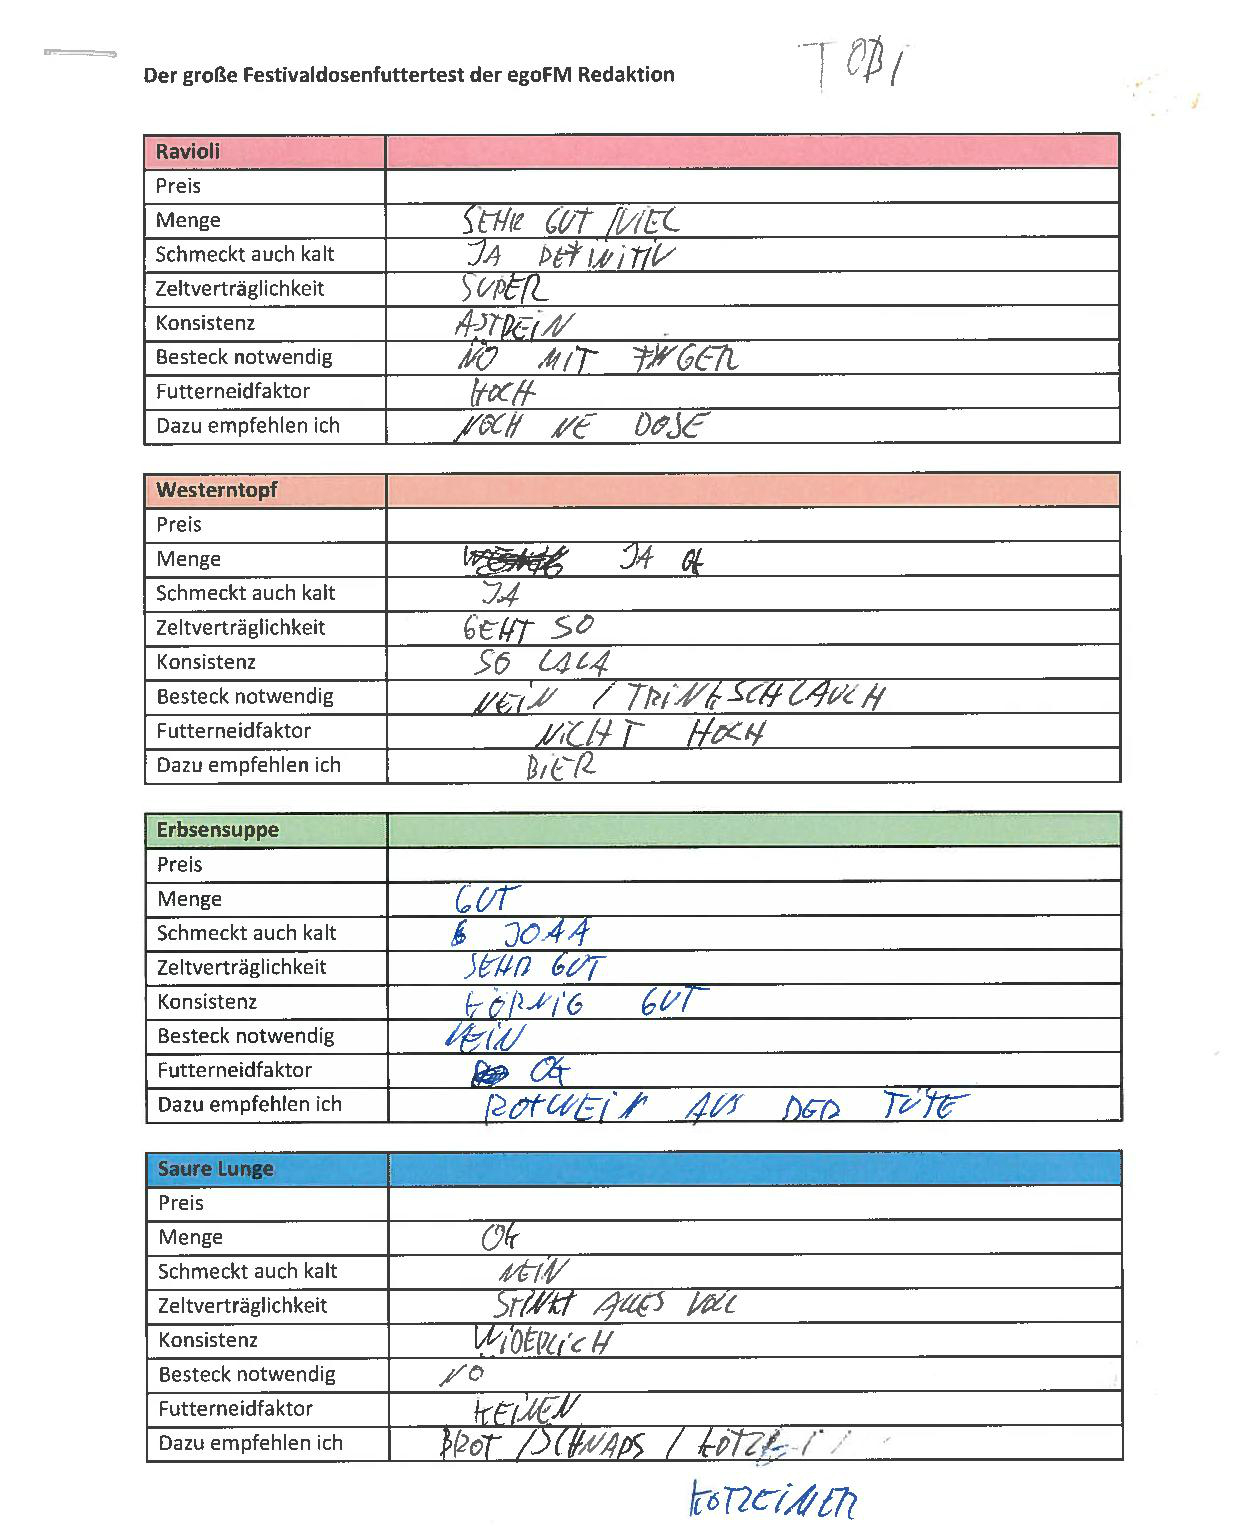 TOBI
Der große Festivaldosenfuttertest der egoFM Redaktion
Ravioli
Preis
Menge SEHR GUT /VIEL
Schmeckt auch kalt JA DEFINITIV
Zeltverträglichkeit SUPER
Konsistenz ASTREIN
Besteck notwendig NÖ MIT FINGER
Futterneidfaktor HOCH
Dazu empfehlen ich NOCH NE DOSE
Westerntopf
Preis
Menge JA OK
Schmeckt auch kalt JA
Zeltverträglichkeit GEHT SO
Konsistenz SO LALA
Besteck notwendig NEIN / TRINKSCHLAUCH
Futterneidfaktor NICHT HOCH
Dazu empfehlen ich BIER
Erbsensuppe
Preis
Menge GUT
Schmeckt auch kalt JOAA
Zeltverträglichkeit SEHR GUT
Konsistenz KÖRNIG GUT
Besteck notwendig NEIN
Futterneidfaktor OK
Dazu empfehlen ich ROTWEIN AUS DER TÜTE
Saure Lunge
Preis
Menge OK
Schmeckt auch kalt NEIN
Zeltverträglichkeit STINKT ALLES VOLL
Konsistenz WIDERLICH
Besteck notwendig NO
Futterneidfaktor KEINEN
Dazu empfehlen ich BROT /SCHNAPS /
KOTZEIMER